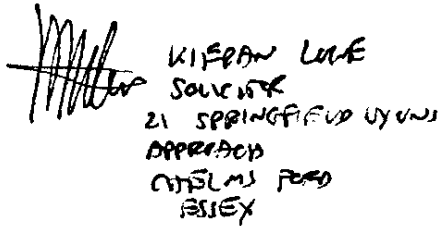 KIERAN LOWE
SOLICITOR
21 SPRINGFIELD LYONS
APPROACH
CHELMSFORD
ESSEX